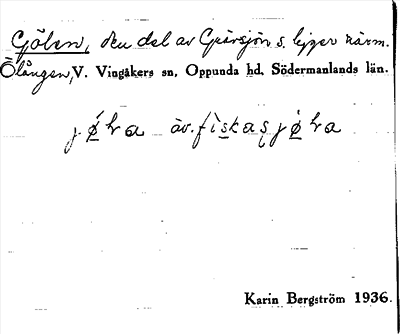 Gölen, den del av Gjärsjön s. ligger närm.
Ölången, V. Vingåkers sn, Oppunda hd, Södermanlands län.
Karin Bergström 1936.